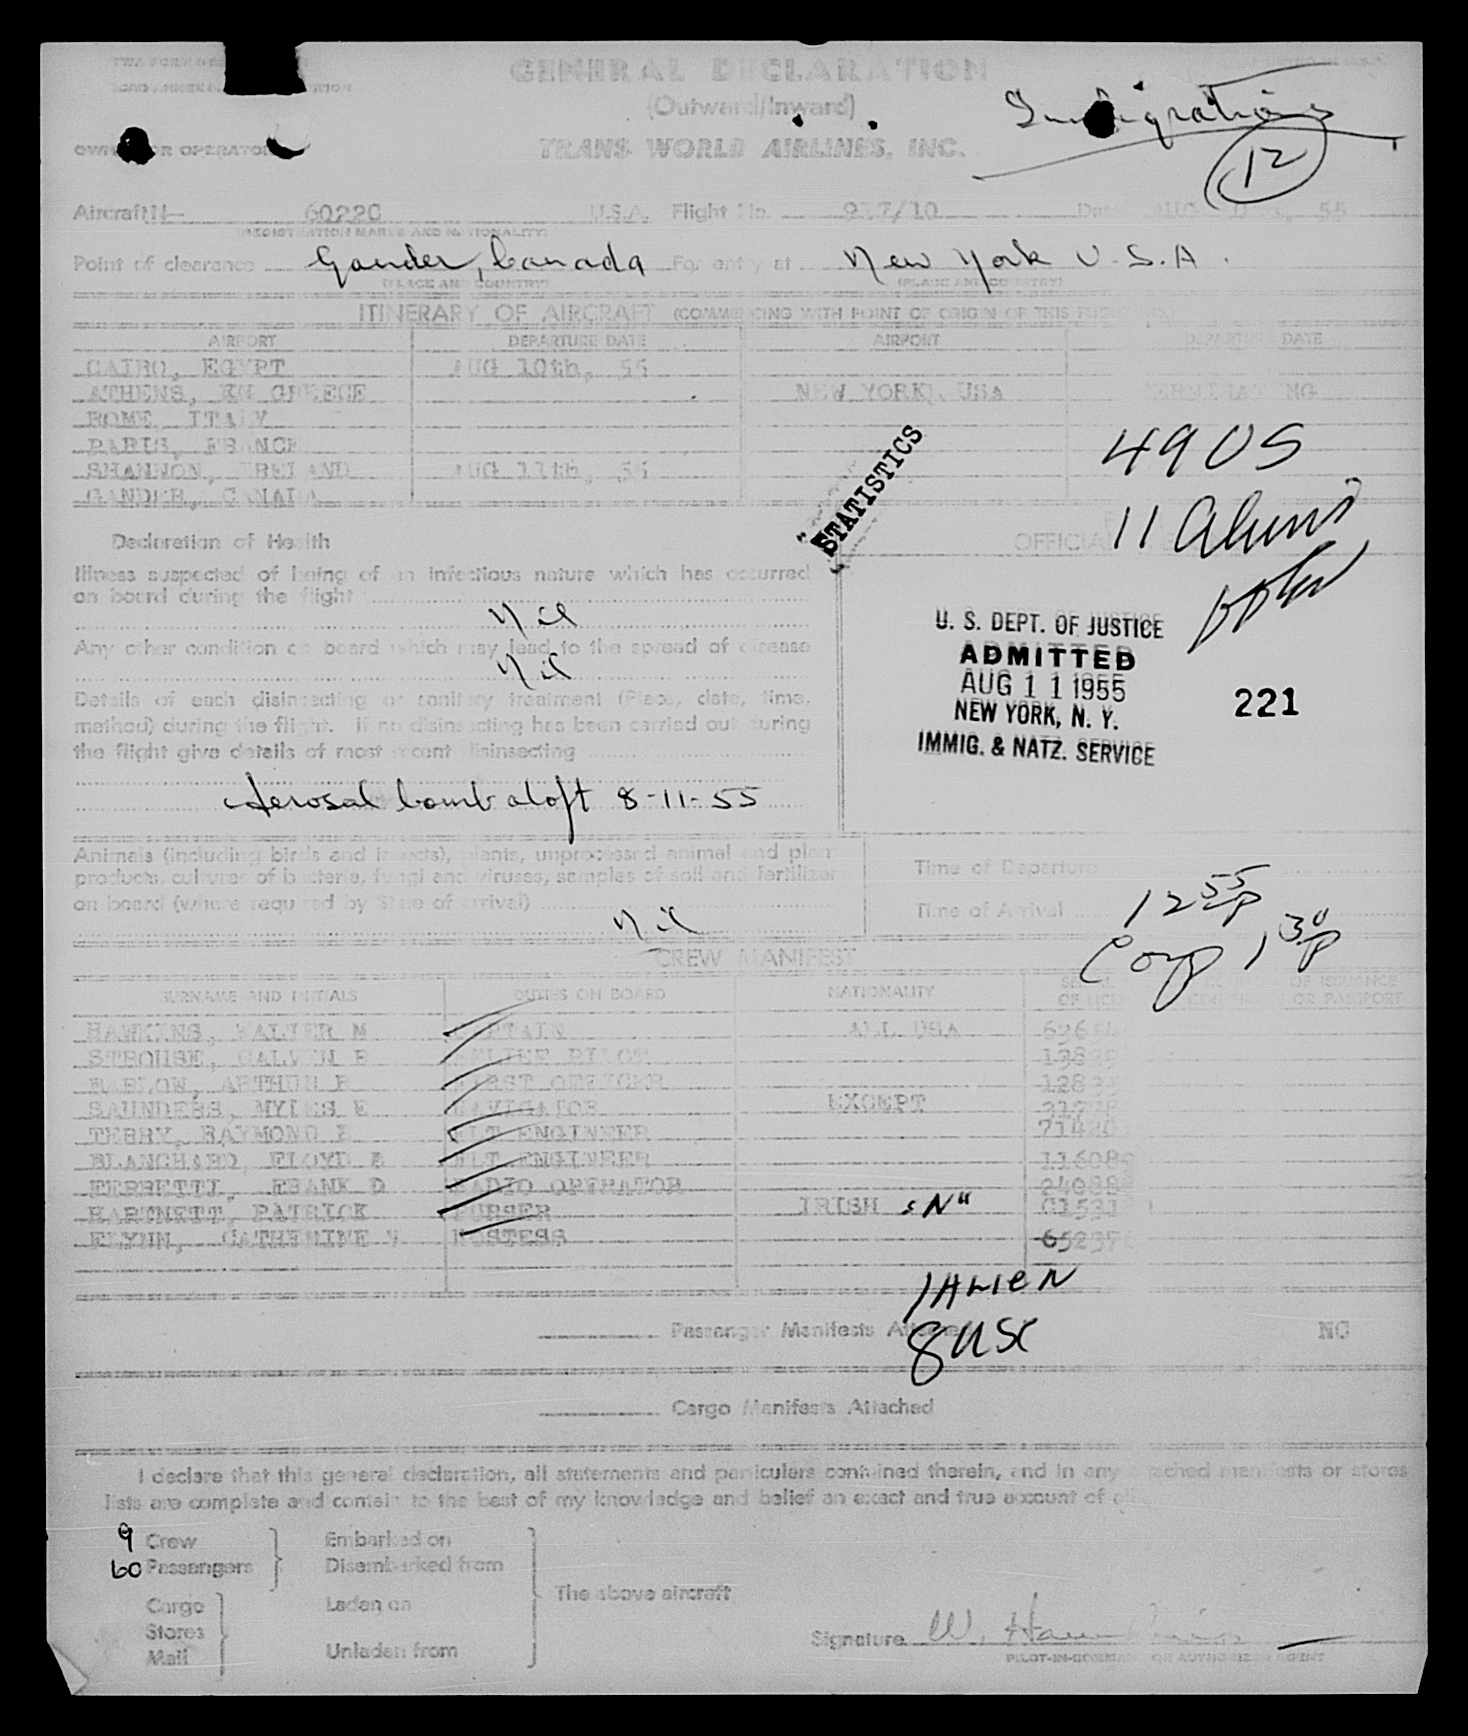 GENERAL DECLARATION
(Outward/Inward)
Immigration
TRANS WORLD AIRLINES, INC.
12
OWNER OR OPERATOR
Aircraft N- 6022C U.S.A. Flight No. 927/10 55
(REGISTRATION MARKS AND NATIONALITY)
Point of clearance Gander, Canada For entry at New York U.S.A.
(PLACE AND COUNTRY) (PLACE AND COUNTRY)
ITINERARY OF AIRCRAFT (COMMENCING WITH POINT OF ORIGIN OF THIS
AIRPORT DEPARTURE DATE AIRPORT DEPARTURE DATE
CAIRO, EGYPT AUG 10th, 55
ATHENS, GREECE NEW YORK, USA TERMINATING
ROME, ITALY
PARIS, FRANCE
SHANNON, IRELAND AUG 11th, 55
GANDER, CANADA
STATISTICS
49 US
11 Aliens
Declaration of Health
OFFICIAL
Illness suspected of being of an infectious nature which has occurred
on board during the flight
Nil
Any other condition on board which may lead to the spread of disease
Nil
Details of each disinsecting or sanitary treatment (Place, date, time,
method) during the flight. If no disinsecting has been carried out during
the flight give details of most recent disinsecting
Aerosol bomb aloft 8-11-55
U. S. DEPT. OF JUSTICE
ADMITTED
AUG 11 1955
NEW YORK, N. Y.
IMMIG. & NATZ. SERVICE
221
Animals (including birds and insects), plants, unprocessed animal and plant
products, cultures of bacteria, fungi and viruses, samples of soil and fertilizer
on board (where required by State of arrival)
Nil
Time of Departure
Time of Arrival
12 55 P
1 30 P
CREW MANIFEST
SURNAME AND INITIALS DUTIES ON BOARD NATIONALITY
HAWKINS, WALTER M CAPTAIN ALL USA
STROUSE, CALVIN RELIEF PILOT
ARTHUR FIRST OFFICER
SAUNDERS, MYLES E NAVIGATOR EXCEPT
TERRY, RAYMOND FLT ENGINEER
BLANCHARD, FLOYD FLT ENGINEER
FERRETTI, FRANK D RADIO OPERATOR
HARTNETT, PATRICK PURSER IRISH "N"
FLYNN, CATHERINE HOSTESS
1 ALIEN
8 USC
Passenger Manifests Attached NO
Cargo Manifests Attached
I declare that this general declaration, all statements and particulars contained therein, and in any attached manifests or stores
lists are complete and contain to the best of my knowledge and belief an exact and true account of all
9 Crew
60 Passengers
Embarked on
Disembarked from
The above aircraft
Cargo
Stores
Mail
Laden on
Unladen from
Signature W. Hawkins
PILOT-IN-COMMAND OR AUTHORIZED AGENT